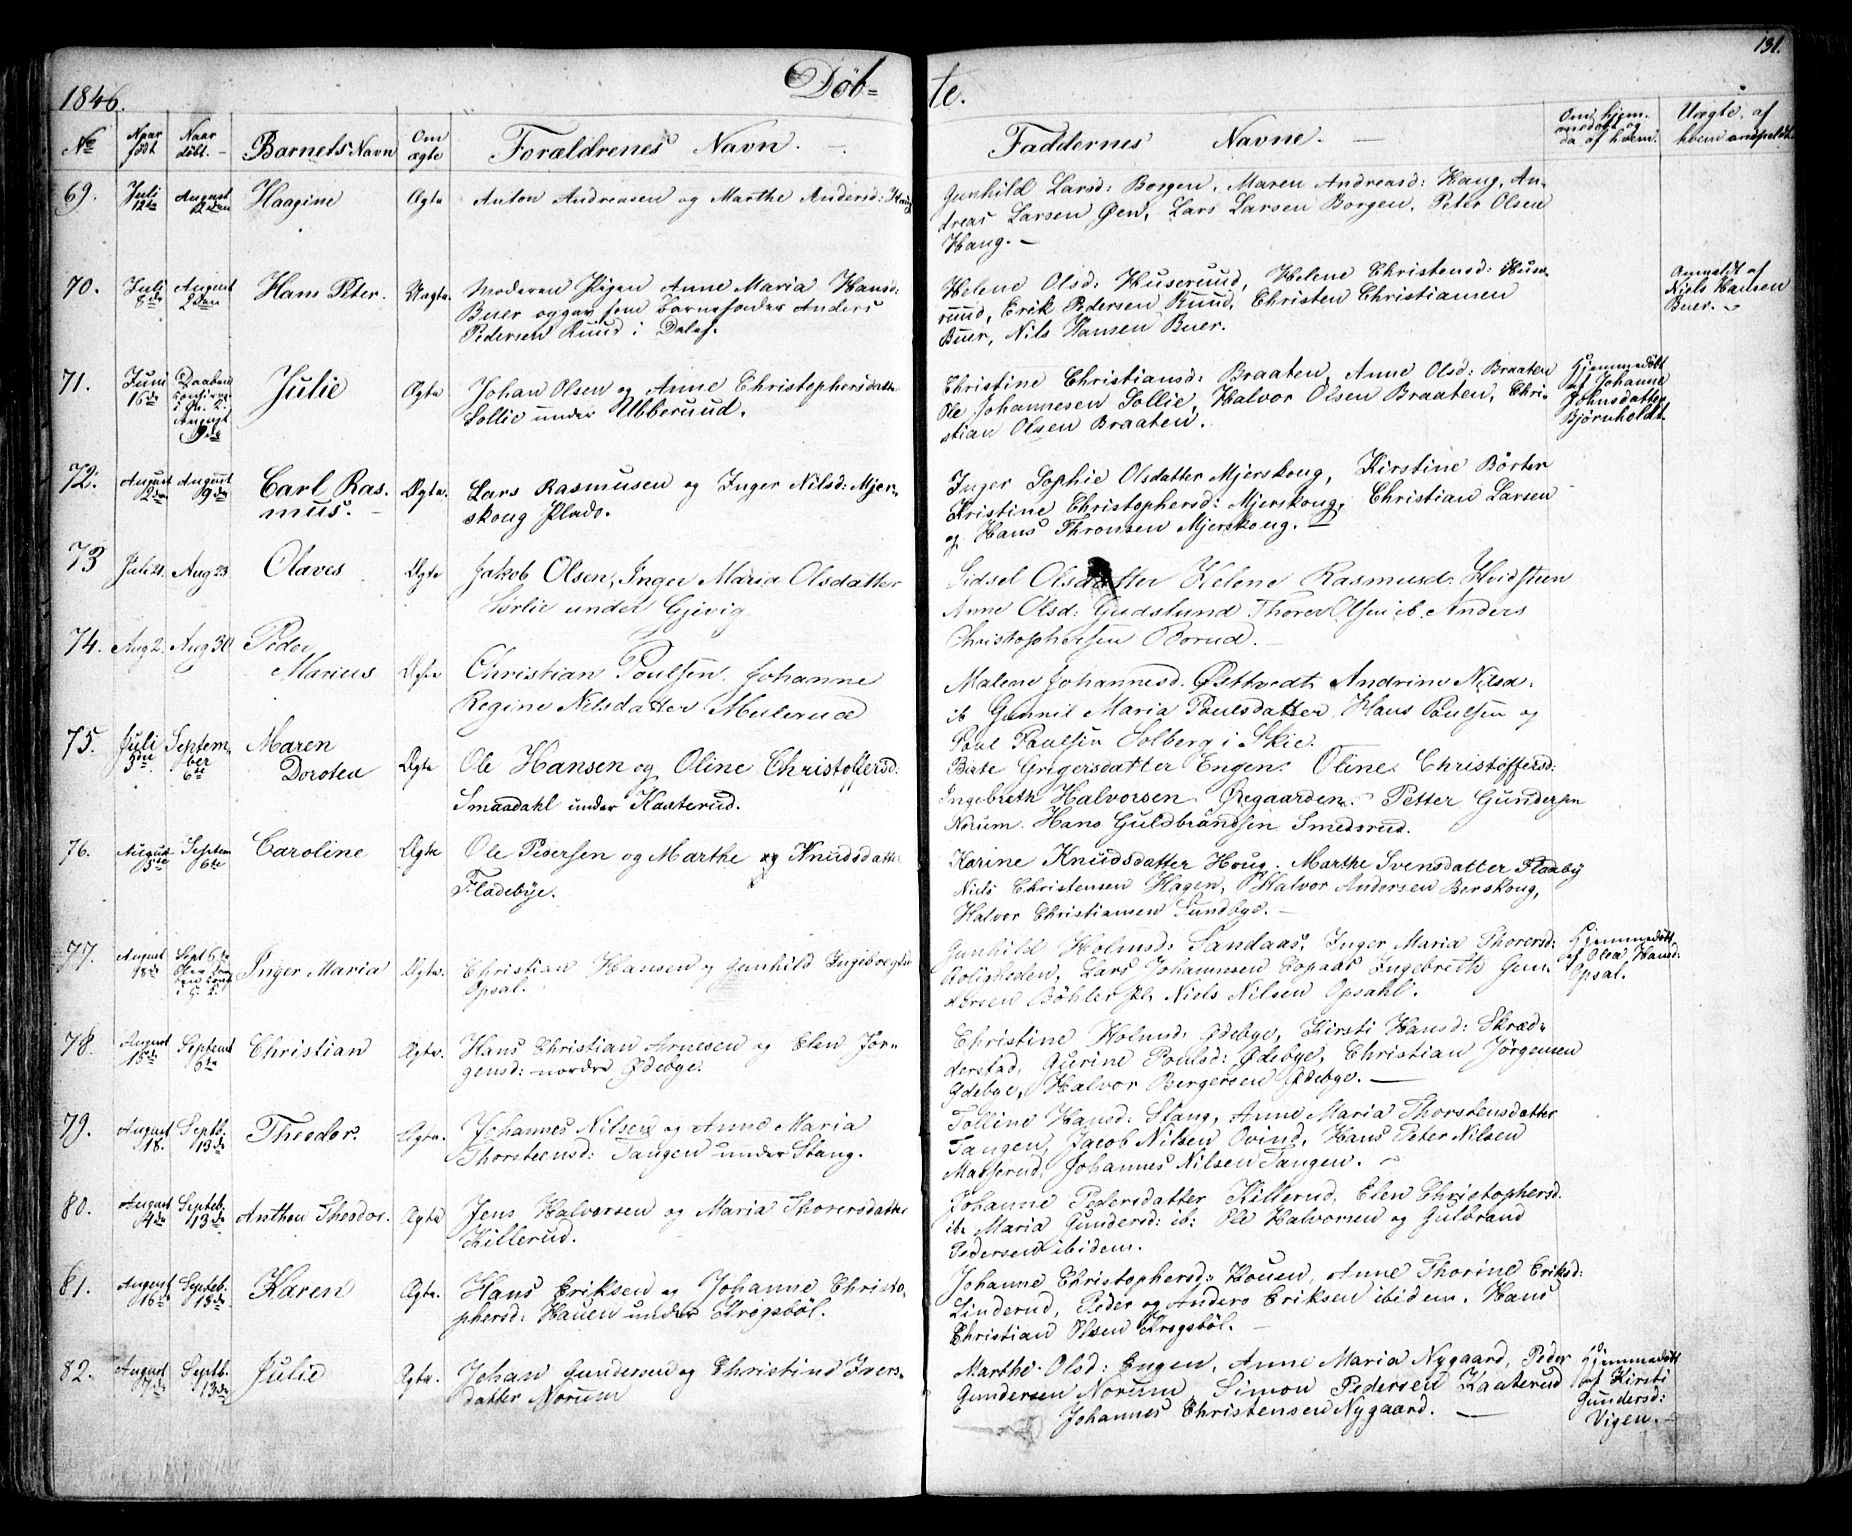 131.
1846. Døb= te.
No Naar født Naar døbt. Barnets Navn Om ægte Forældrenes Navn. Faddernes Navne. Om hjemmedøbt og da af hvem. Uægte, af hvem anmeldt
69. Juli 12te August 2den Haagine Ægte Anton Andreasen og Marthe Andersd: Haug
Gunhild Larsd: Borgen, Maren Andreasd: Haug, An-
dreas Larsen Øen, Lars Larsen Borgen, Peter Olsen
Haug. —
70. Juli 8de August 2den Hans Peter. Uægte. Moderen Pigen Anne Maria Hansd:
Buer opgav som Barnefader Anders
Pedersen Ruud i Dalef.
Helene Olsd: Huseruud, Helene Christensd: Huse-
ruud, Erik Pedersen Ruud, Christen Christiansen
Buer, Nils Hansen Buer.
Anmeldt af
Niels Hansen
Buer. —
71. Juni 16de Daaben
i
August
9de
Julie Ægte Johan Olsen og Anne Christophersdatter
Sollie under Ubberuud.
Christine Christiansd: Braaten, Anne Olsd: Braaten
Ole Johannesen Sollie, Halvor Olsen Braaten, Chri-
stian Olsen Braaten.
Hjemmedøbt
af Johanne
Johnsdatter
Bjørnholdt.
72. August 2den August 9de Carl Ras-
mus. — Ægte. Lars Rasmusen og Inger Nilsd: Mjer-
skoug Plads.
Inger Sophie Olsdatter Mjerskoug, Kirstine Børter
Kristine Christophersd: Mjerskoug, Christian Larsen
og Hans Thronsen Mjerskoug. —
73 Juli 21. Aug 23 Olaves Ægte Jakob Olsen, Inger Maria Olsdatter
Sørlie under Gjevig
Sidsel Olsdatter Helene Rasmusd: Hvidsteen
Anne Olsd: Gudslund Thorer Olsen ib. Anders
Christophersen Borud. —
74. Aug 2. Aug 30 Peder
Marius Ægte Christian Poulsen. Johanne
Regine Nilsdatter Mulerud
Malene Johannesd. Østtvedt Andrine Nilsd.
ib Gunnil Maria Poulsdatter, Hans Poulsen og
Poul Poulsen Solberg i Skie.
75. Juli 5te Septem
ber
6te Maren
Dorotea Ægte Ole Hansen og Oline Christoffersd:
Smaadahl under Kaaterud.
Birte Grigersdatter Engen. Oline Christoffersd:
Ingebreth Halvorsen Øregaarden. Petter Gundersen
Norum. Hans Guldbrandsen Smedsrud.
76. August 5te Septem
6te Caroline Ægte Ole Pedersen og Marthe Knudsdatter
Fladebye.
Karine Knudsdatter Houg. Marthe Svensdatter Fladby
Niels Christensen Hagen, Halvor Andersen Berskoug,
Halvor Christiansen Sundbye. —
77. August 18de Sept 6te
Inger Maria Ægte. Christian Hansen og Gunhild
Opsal.
Gunhild Holmsd: Sandaas, Inger Maria Thorersd:
Roligheden, Lars Johannesen Ingebreth Gun-
dersen Bøhler Pl, Niels Nilsen Opsahl.
Hjemmedøbt
af Olea Hansd:
Opsal.
78. August 15de Septemb 6te Christian Ægte. Hans Christian Arnesen og Elen Jør-
gensd: nordre Ødebye.
Christine Holmsd: Ødebye, Kirsti Hansd: Skræd-
derstad, Gurine Poulsd: Ødebye, Christian Jørgensen
Ødebye, Halvor Bergersen Ødebye. —
79. August 18. Septb. 13de Theodor. Ægte. Johannes Nilsen og Anne Maria
Thorsteensd: Tangen under Stang.
Tolline Hansd: Stang, Anne Maria Thorstensdatter
Tangen, Jacob Nilsen Ovind, Hans Peter Nilsen
Johannes Nilsen Tangen. —
80. August 4de Septeb. 13de Anthon Theodor. Ægte Jens Halvorsen og Maria Thorersdatter
Killerud.
Johanne Pedersdatter Killerud, Elen Christophersd.
ib. Maria Gundersd: ib: Ole Halvorsen og Gulbrand
Pedersen ibidem.
81. August 16de Septeb. 13de Karen Ægte. Hans Eriksen og Johanne Christo-
phersd: Hauen under Krogsbøl.
Johanne Christophersd: Houen, Anne Thorine Eriksd:
Linderud, Peder og Anders Eriksen ibidem. Hans
Christian Olsen Krogsbøl. —
82. August 7de Septb. 13de Julie Ægte. Johan Gundersen og Christine Ivers-
datter Norum
Marthe Olsd: Engen, Anne Maria Nygaard, Peder
Gundersen Norum, Simon Pedersen Kaaterud
Johannes Christensen Nygaard. —
Hjemmedøbt
af Kirsti
Gundersd:
Vigen. —